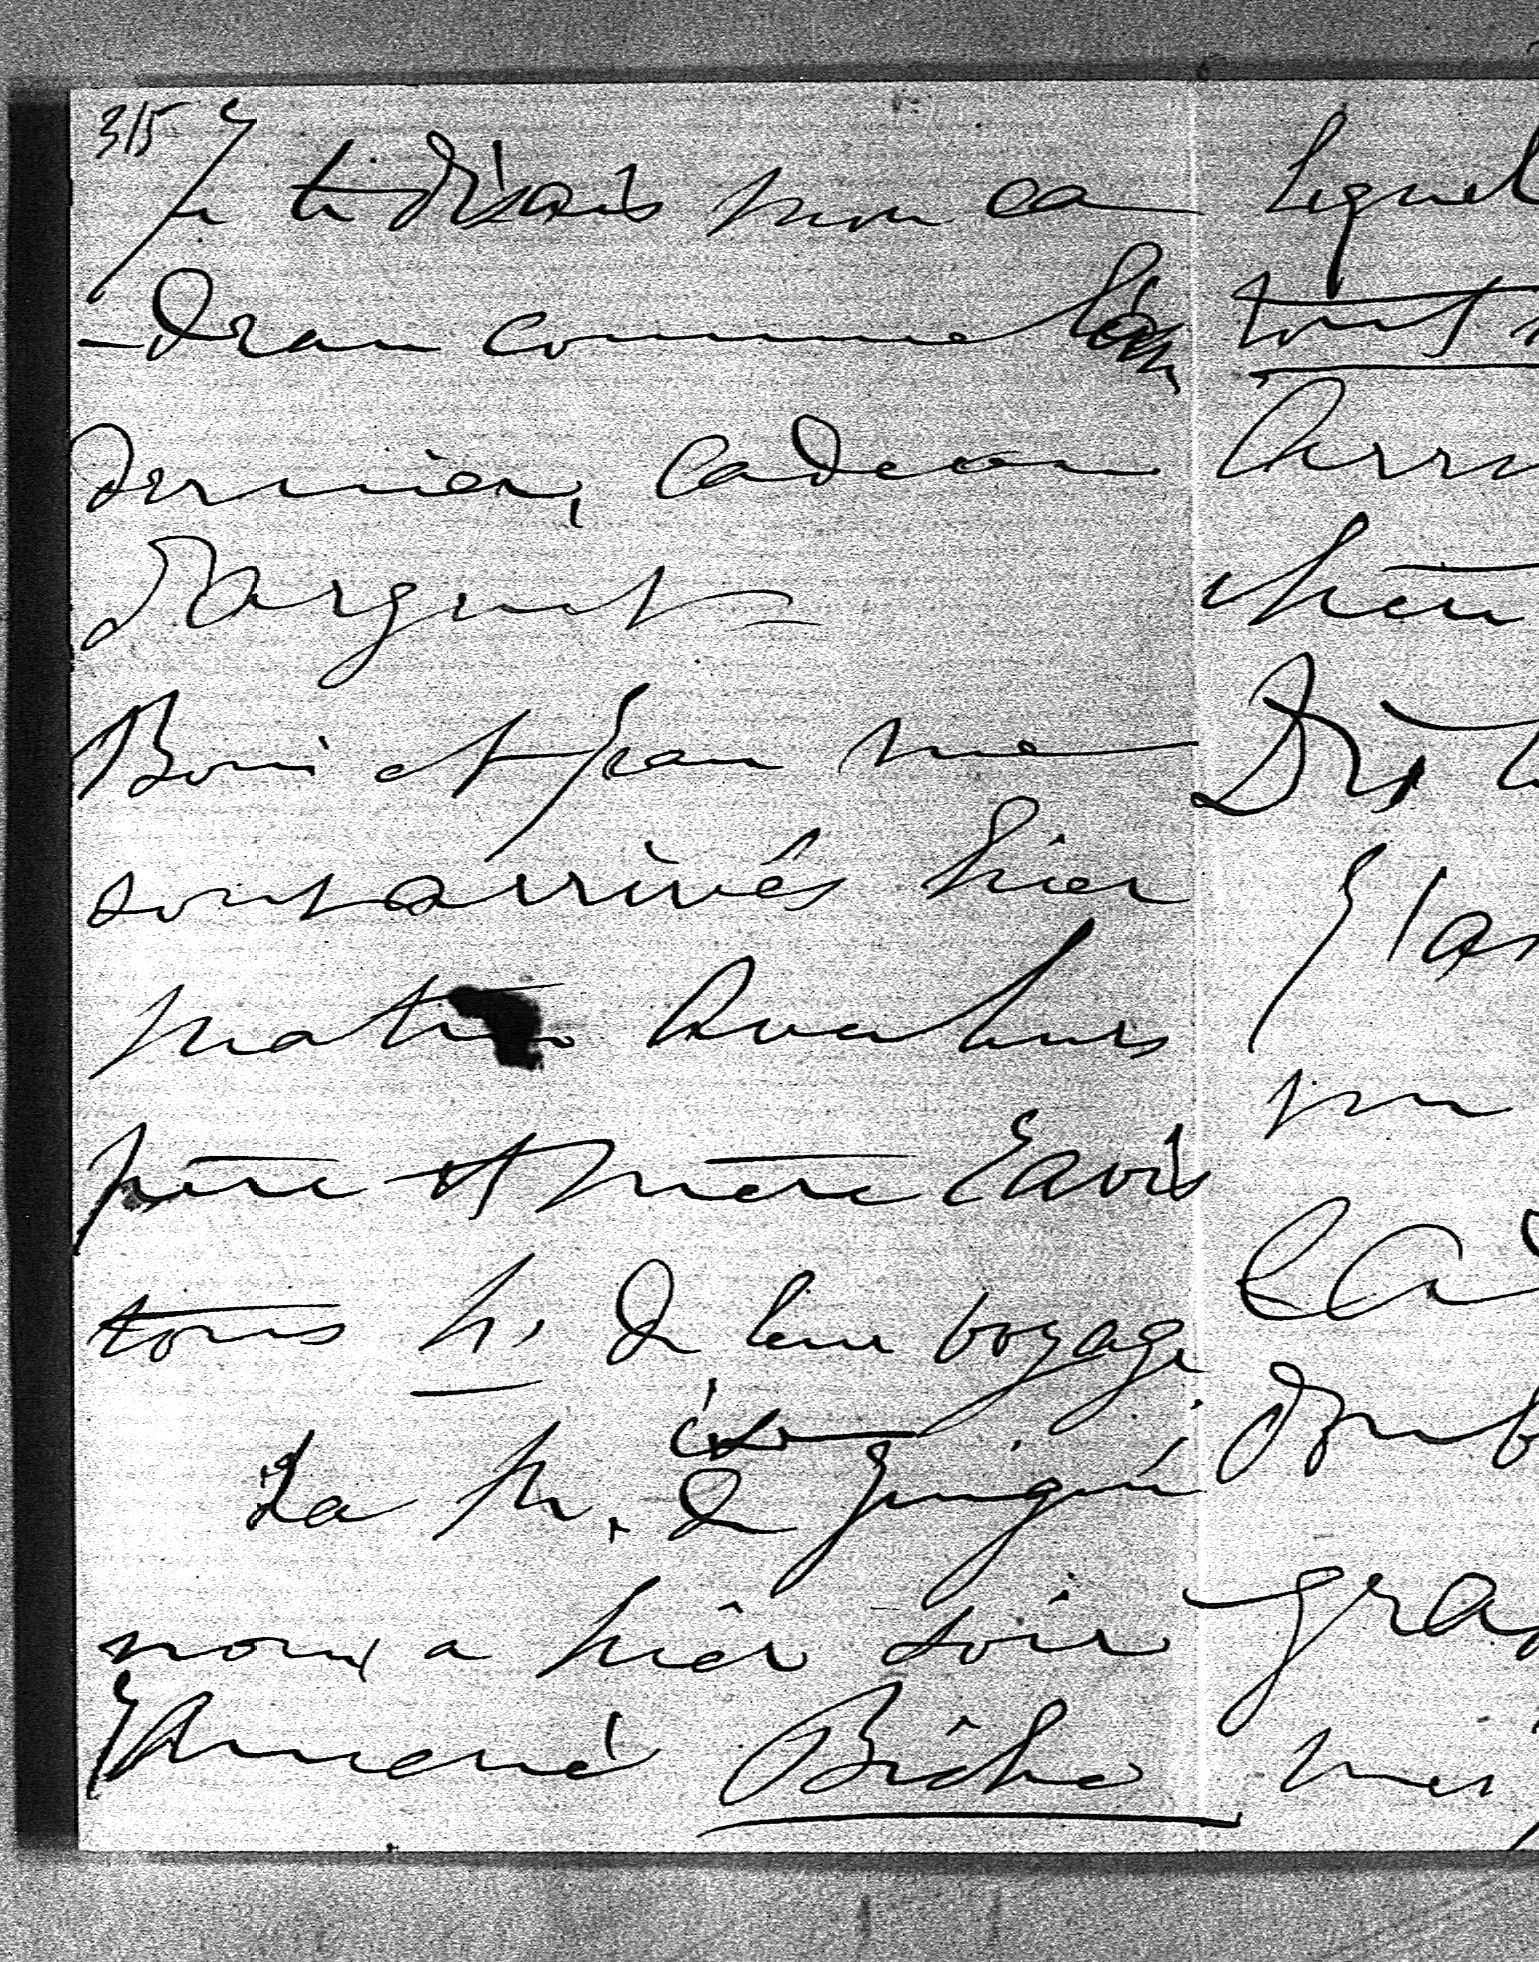 315
Je te disais mon ca
-dran comme l'an
dernier, cadran
d'argent —
Boni et Jean me
sont arrivés hier
matin avec leurs
père et mère ravis
tous h. de leur voyage
La M. ise de Juigné
nous a hier soir
amené Biche
lequel
tout
Arri
chèr
Dr
un
Ca
doub
gra
mes